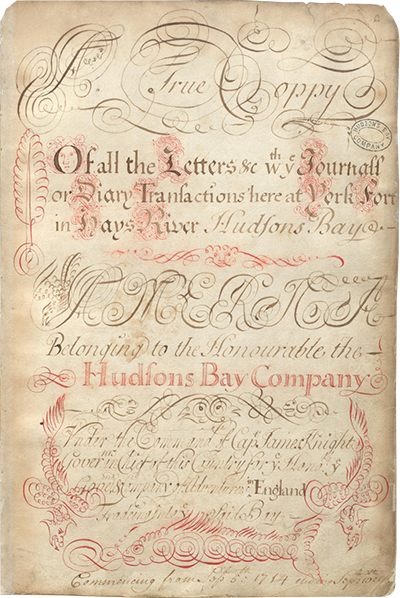 A True Coppy
HUDSONS BAY
COMPANY
Of all the Letters &c wth ye Journall
or Diary Transactions here at York Fort
in Hays River Hudsons Bay
AMERICA
Belonging to the Honourable the
Hudsons Bay Company
Under the Command of Capt James Knight
Govern in Cheif of this Country for ye Honble ye
Govr & Company of Adventurers England
Trading into Bay
Commencing from Sepr 5th 1714